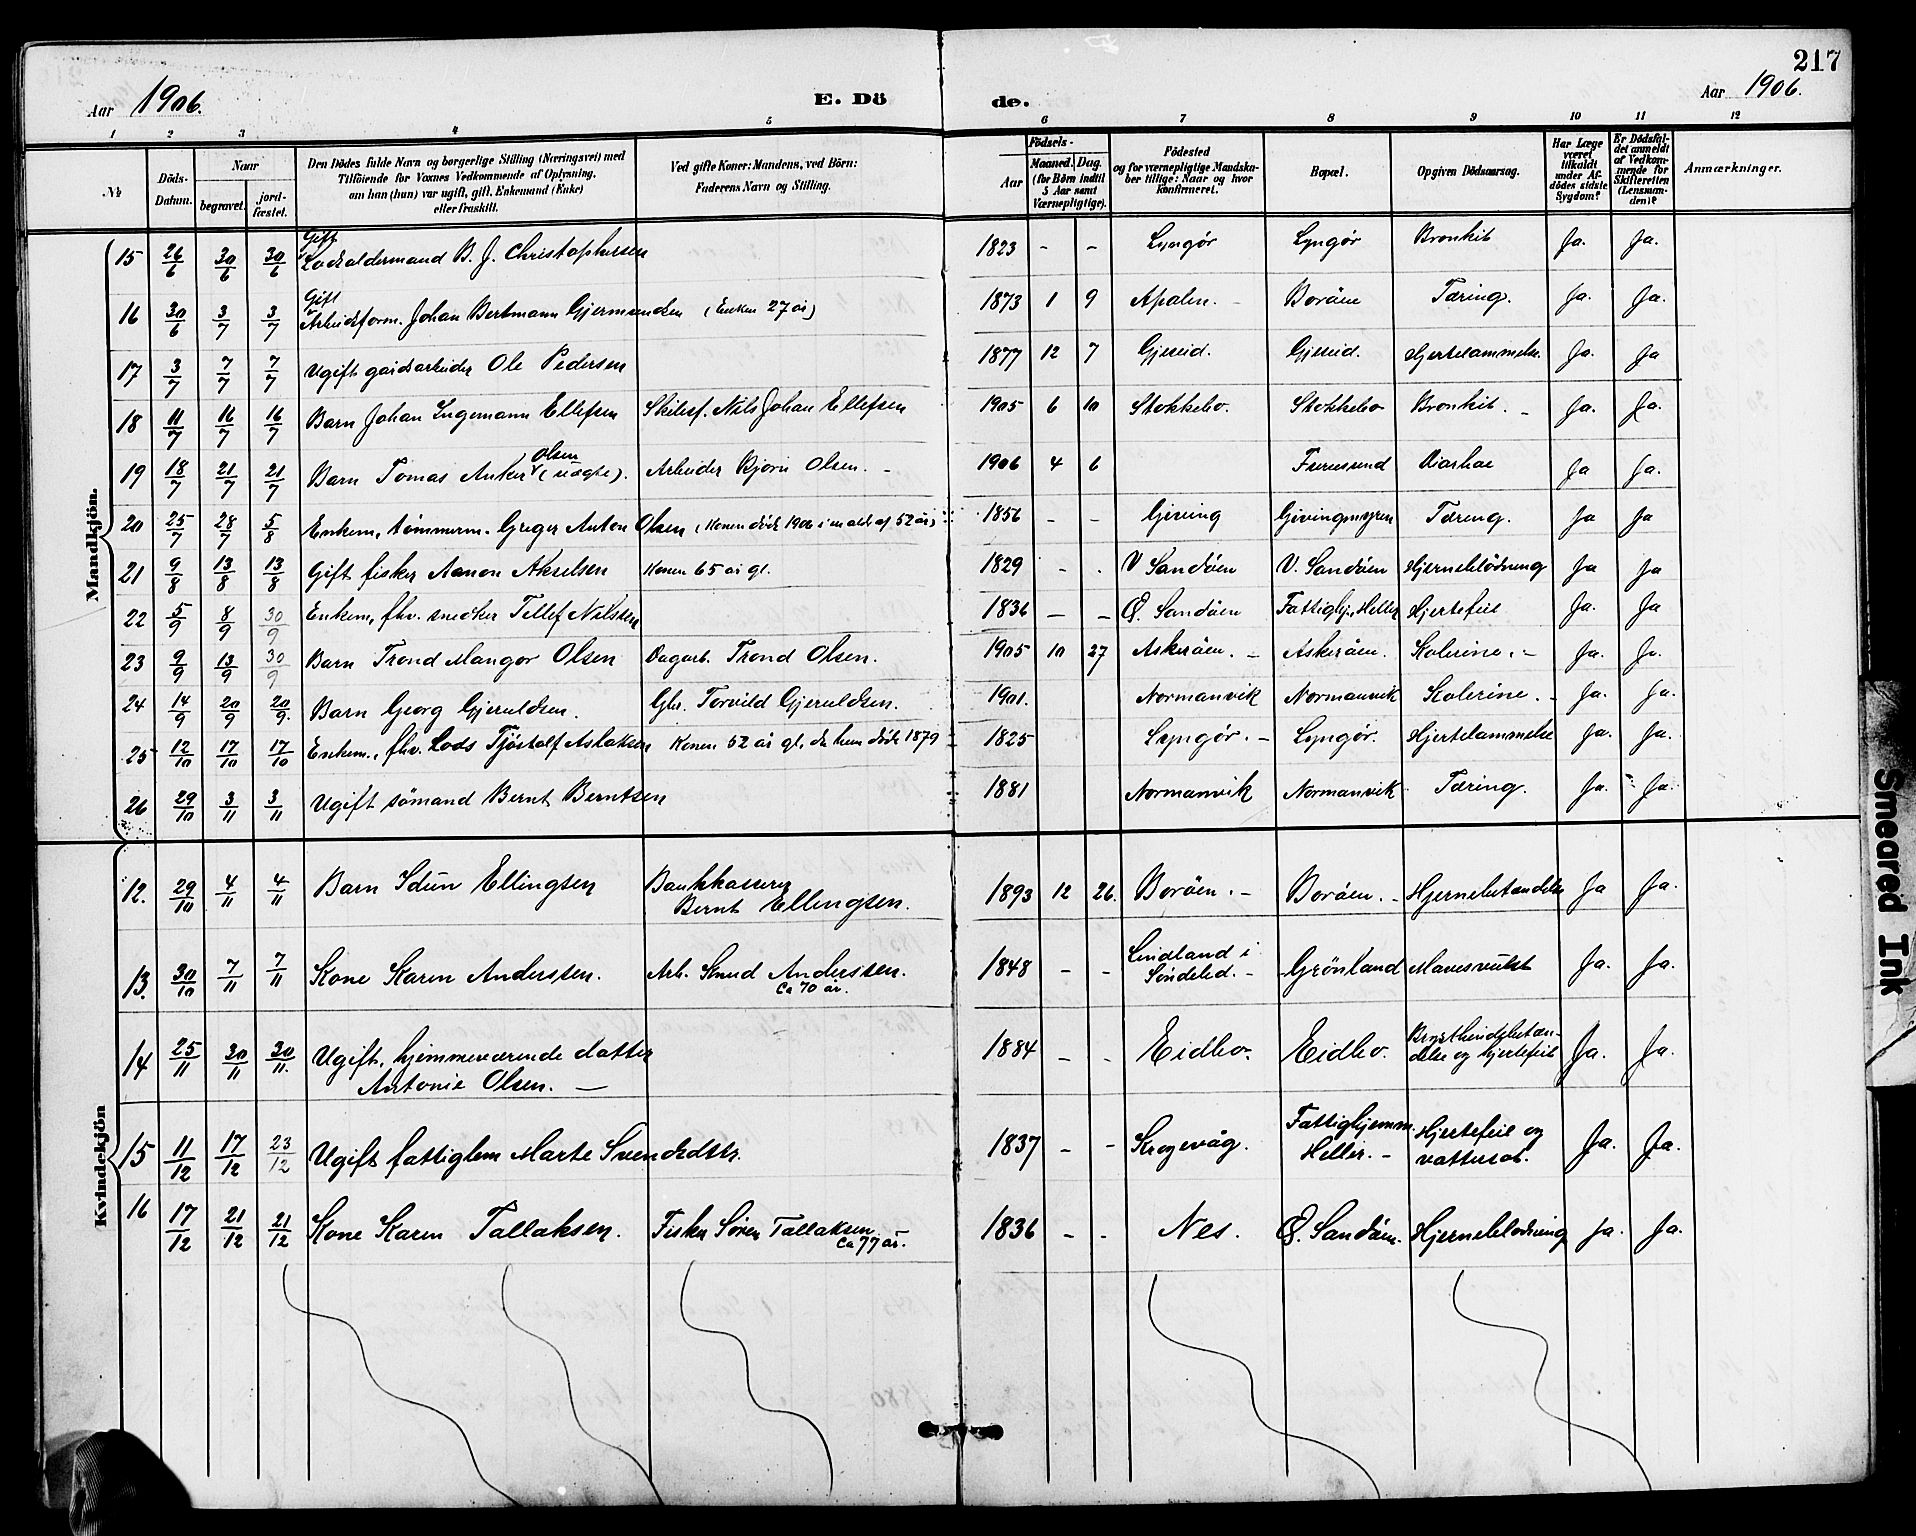 217
Aar 1906.
E. Dö de.
Aar 1906.
1 2 3 4 5 6 7 8 9 10 11 12
No
Döds-Datum.
Naar
begravet.
jord-fæstet.
Den Dödes fulde Navn og borgerlige Stilling (Næringsvei) med
Tilföiende for Voxnes Vedkommende af Oplysning,
om han (hun) var ugift, gift, Enkemand (Enke)
eller fraskilt.
Ved gifte Koner: Mandens, ved Börn:
Faderens Navn og Stilling.
Födsels-
Aar
Maaned. Dag.
(for Börn indtil
5 Aar samt
Værnepligtige).
Födested
og for værnepligtige Mandska-
ber tillige: Naar og hvor
konfirmeret.
Bopæl.
Opgiven Dödsaarsag.
Har Læge
været
tilkaldt
under Af-
dödes sidste
Sygdom?
Er Dödsfal-
det anmeldt
af Vedkom-
mende for
Skifteretten
(Lensman-
den)?
Anmærkninger.
Mandkjön.
15 26/6 30/6 30/6 Gift Lodsoldermand B. J. Christophersen 1823 - - Lyngør Lyngør Bronkit Ja. Ja.
16 30/6 3/7 3/7 Gift Arbeidsform. Johan Bertmann Gjermundsen (Enken 27 år) 1873 1 9 Apalen. - Boröen Tæring. Ja. Ja.
17 3/7 7/7 7/7 Ugift gårdsarbeider Ole Pedersen 1877 12 7 Gjeseid. Gjeseid. Hjertelammelse. Ja. Ja
18 11/7 16/7 16/7 Barn Johan Ingemann Ellefsen Skibsf. Nils Johan Ellefsen 1905 6 10 Stokkebo. Stokkebo Bronkit. - Ja. Ja.
19 18/7 21/7 21/7 Barn Tomas Anker Olsen (uægte). Arbeider Bjorn Olsen. - 1906 4 6 Furesund Diarhae Ja Ja.
20 25/7 28/7 5/8 Enkem. tömmerm. Greger Anton Olsen (Konen döde 1906 i en ald. af 52 år) 1856 - - Gjeving Gjevingmyren Tæring. Ja Ja
21 9/8 13/8 13/8 Gift fisker Aanon Akselsen Konen 65 år gl. 1829 - . V Sandöen V. Sandöen Hjerneblödning Ja Ja
22 5/9 8/9 30/9 Enkem. fhv. snedker Tellef Nilssen 1836 - - Ø. Sandöen Fattighj. Heller Hjertefeil Ja. Ja
23 9/9 13/9 30/9 Barn Trond Mangor Olsen Dagarb. Trond Olsen. 1905 10 27 Askeröen. - Askeröen. Kolerine. - Ja. Ja.
24 14/9 20/9 20/9. Barn Georg Gjeruldsen. Gbr. Torvild Gjeruldsen. 1901. Normanvik Normanvik Kolerine. - Ja. Ja.
25 12/10 17/10 17/10 Enkem., fhv. Lods Tjöstolf Aslaksen Konen 52 år gl. da hun döde 1879 1825 Lyngør. - Lyngør. Hjertelammelse Ja. Ja.
26 29/10 3/11 3/11 Ugift sömand Bernt Berntsen 1881 Normanvik Normanvik Tæring. Ja. Ja.
Kvindekjön
12. 29/10 4/11 4/11 Barn Idun Ellingsen Bankkasserer
Bernt Ellingsen. 1893 12 26. Boröen. - Boröen. - Hjernebetændelse Ja Ja.
13. 30/10 7/11 7/11 Kone Karen Anderssen. Arb. Knud Anderssen.
Ca 70 år. 1848 - - Lindland i
Söndeled. - Grönland Mavesvulst Ja. Ja.
14 25/11 30/11 30/11. Ugift, hjemmeværende datter
Antonie Olsen. - 1884 - - Eidbo. Eidbo. Brysthindebetæn-
delse og hjertefeil Ja. Ja.
15 11/12 17/12 23/12 Ugift fattiglem Marte Svendsdtr. 1837 - - Krogevåg. Fattighjemm.
Heller. - Hjertefeil og
vattersot. Ja. Ja.
16 17/12 21/12 21/12 Kone Karen Tallaksen. Fisker Sören Tallaksen.
Ca 77 år. 1836 - - Nes. Ø. Sandöen. Hjerneblödning Ja. Ja.
Smeared Ink